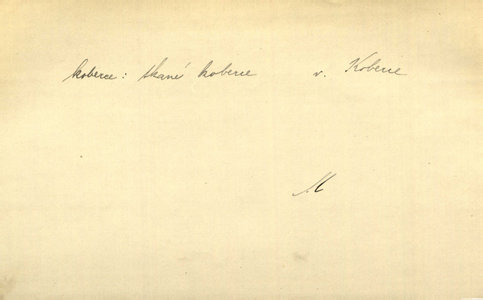 koberce: tkané koberce v. Koberce
M